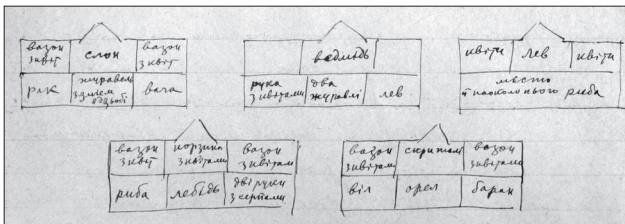 вазон слон вазон
з квіт з квіт
рак журавель
з змієм
в дзьобі вача
ведмідь
рука
з квітами два
журавлі лев
квіти лев квіти
місто
й наоколо нього риба
вазон
з квіт корзина
з квітами вазон
з квітам
риба лебідь дві руки
з серпами
вазон
з квітами скрипаль вазон
з квітами
віл орел баран